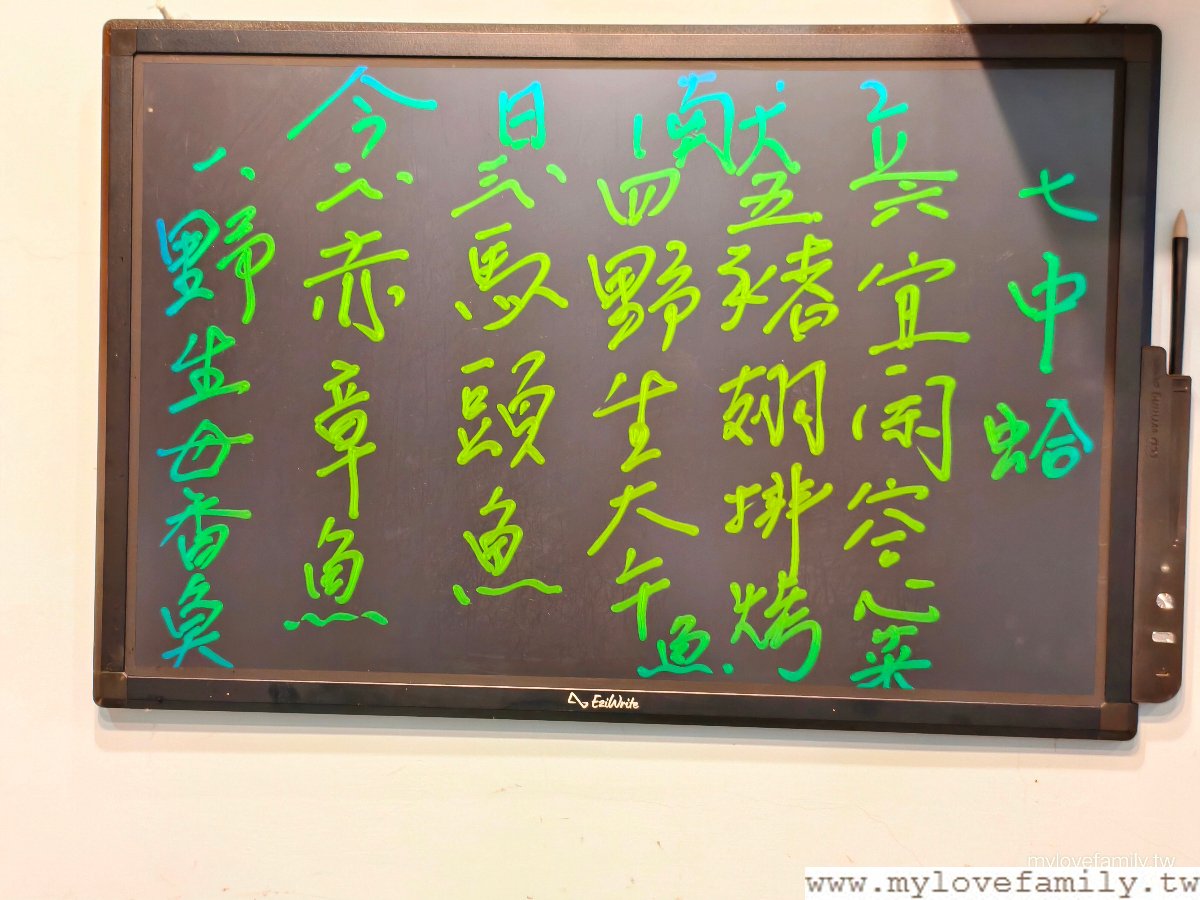 今日献立
一、野生母香魚
二、赤章魚
三、馬頭魚
四野生大午魚
五豬翅排烤
六宜蘭空心菜
七中蛤
EziWrite
mylovefamily.tw
www.mylovefamily.tw